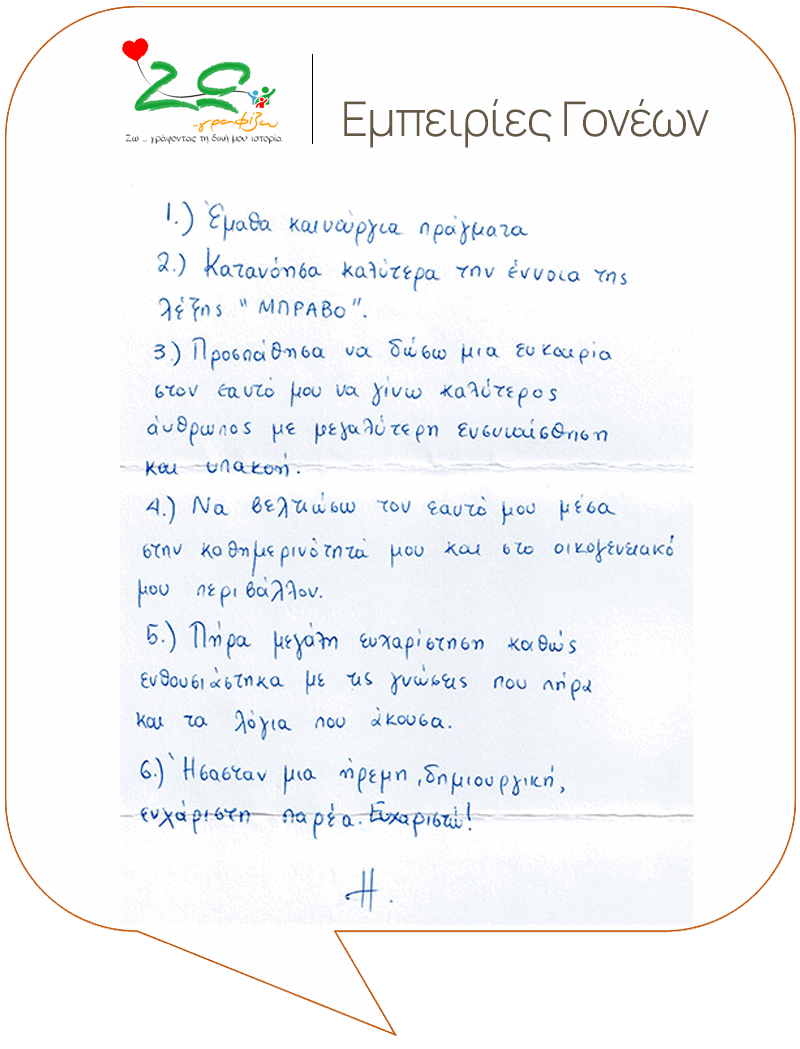 ΖΩ
...γραφίζω
Ζω ... γράφοντας τη δική μου ιστορία
Εμπειρίες Γονέων
1.) Έμαθα καινούργια πράγματα
2.) Κατανόησα καλύτερα την έννοια της
λέξης "ΜΠΡΑΒΟ".
3.) Προσπάθησα να δώσω μια ευκαιρία
στον εαυτό μου να γίνω καλύτερος
άνθρωπος με μεγαλύτερη ενσυναίσθηση
και υπακοή.
4.) Να βελτιώσω τον εαυτό μου μέσα
στην καθημερινότητά μου και στο οικογενειακό
μου περιβάλλον.
5.) Πήρα μεγάλη ευχαρίστηση καθώς
ενθουσιάστηκα με τις γνώσεις που πήρα
και τα λόγια που άκουσα.
6.) Ήσασταν μια ήρεμη, δημιουργική,
ευχάριστη παρέα. Ευχαριστώ!
Η.